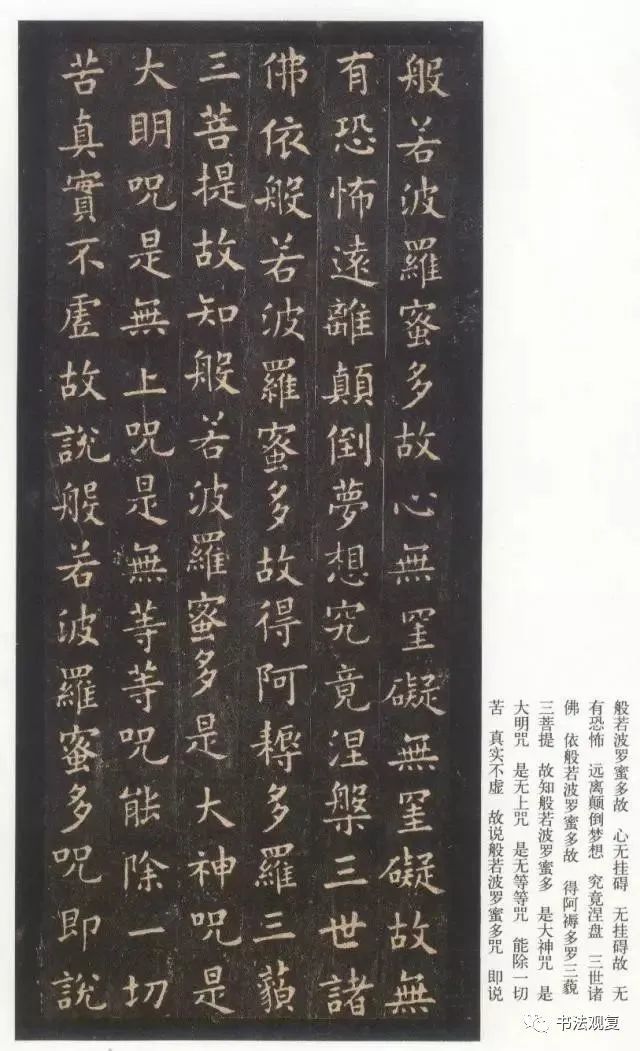 般若波羅蜜多故心無罣礙無罣礙故無
有恐怖遠離顛倒夢想究竟涅槃三世諸
佛依般若波羅蜜多故得阿耨多羅三藐
三菩提故知般若波羅蜜多是大神咒是
大明咒是無上咒是無等等咒能除一切
苦真實不虛故說般若波羅蜜多咒即說
般若波罗蜜多故 心无挂碍 无挂碍故 无
有恐怖 远离颠倒梦想 究竟涅盘 三世诸
佛 依般若波罗蜜多故 得阿褥多罗三藐
三菩提 故知般若波罗蜜多 是大神咒 是
大明咒 是无上咒 是无等等咒 能除一切
苦 真实不虚 故说般若波罗蜜多咒 即说
书法观复